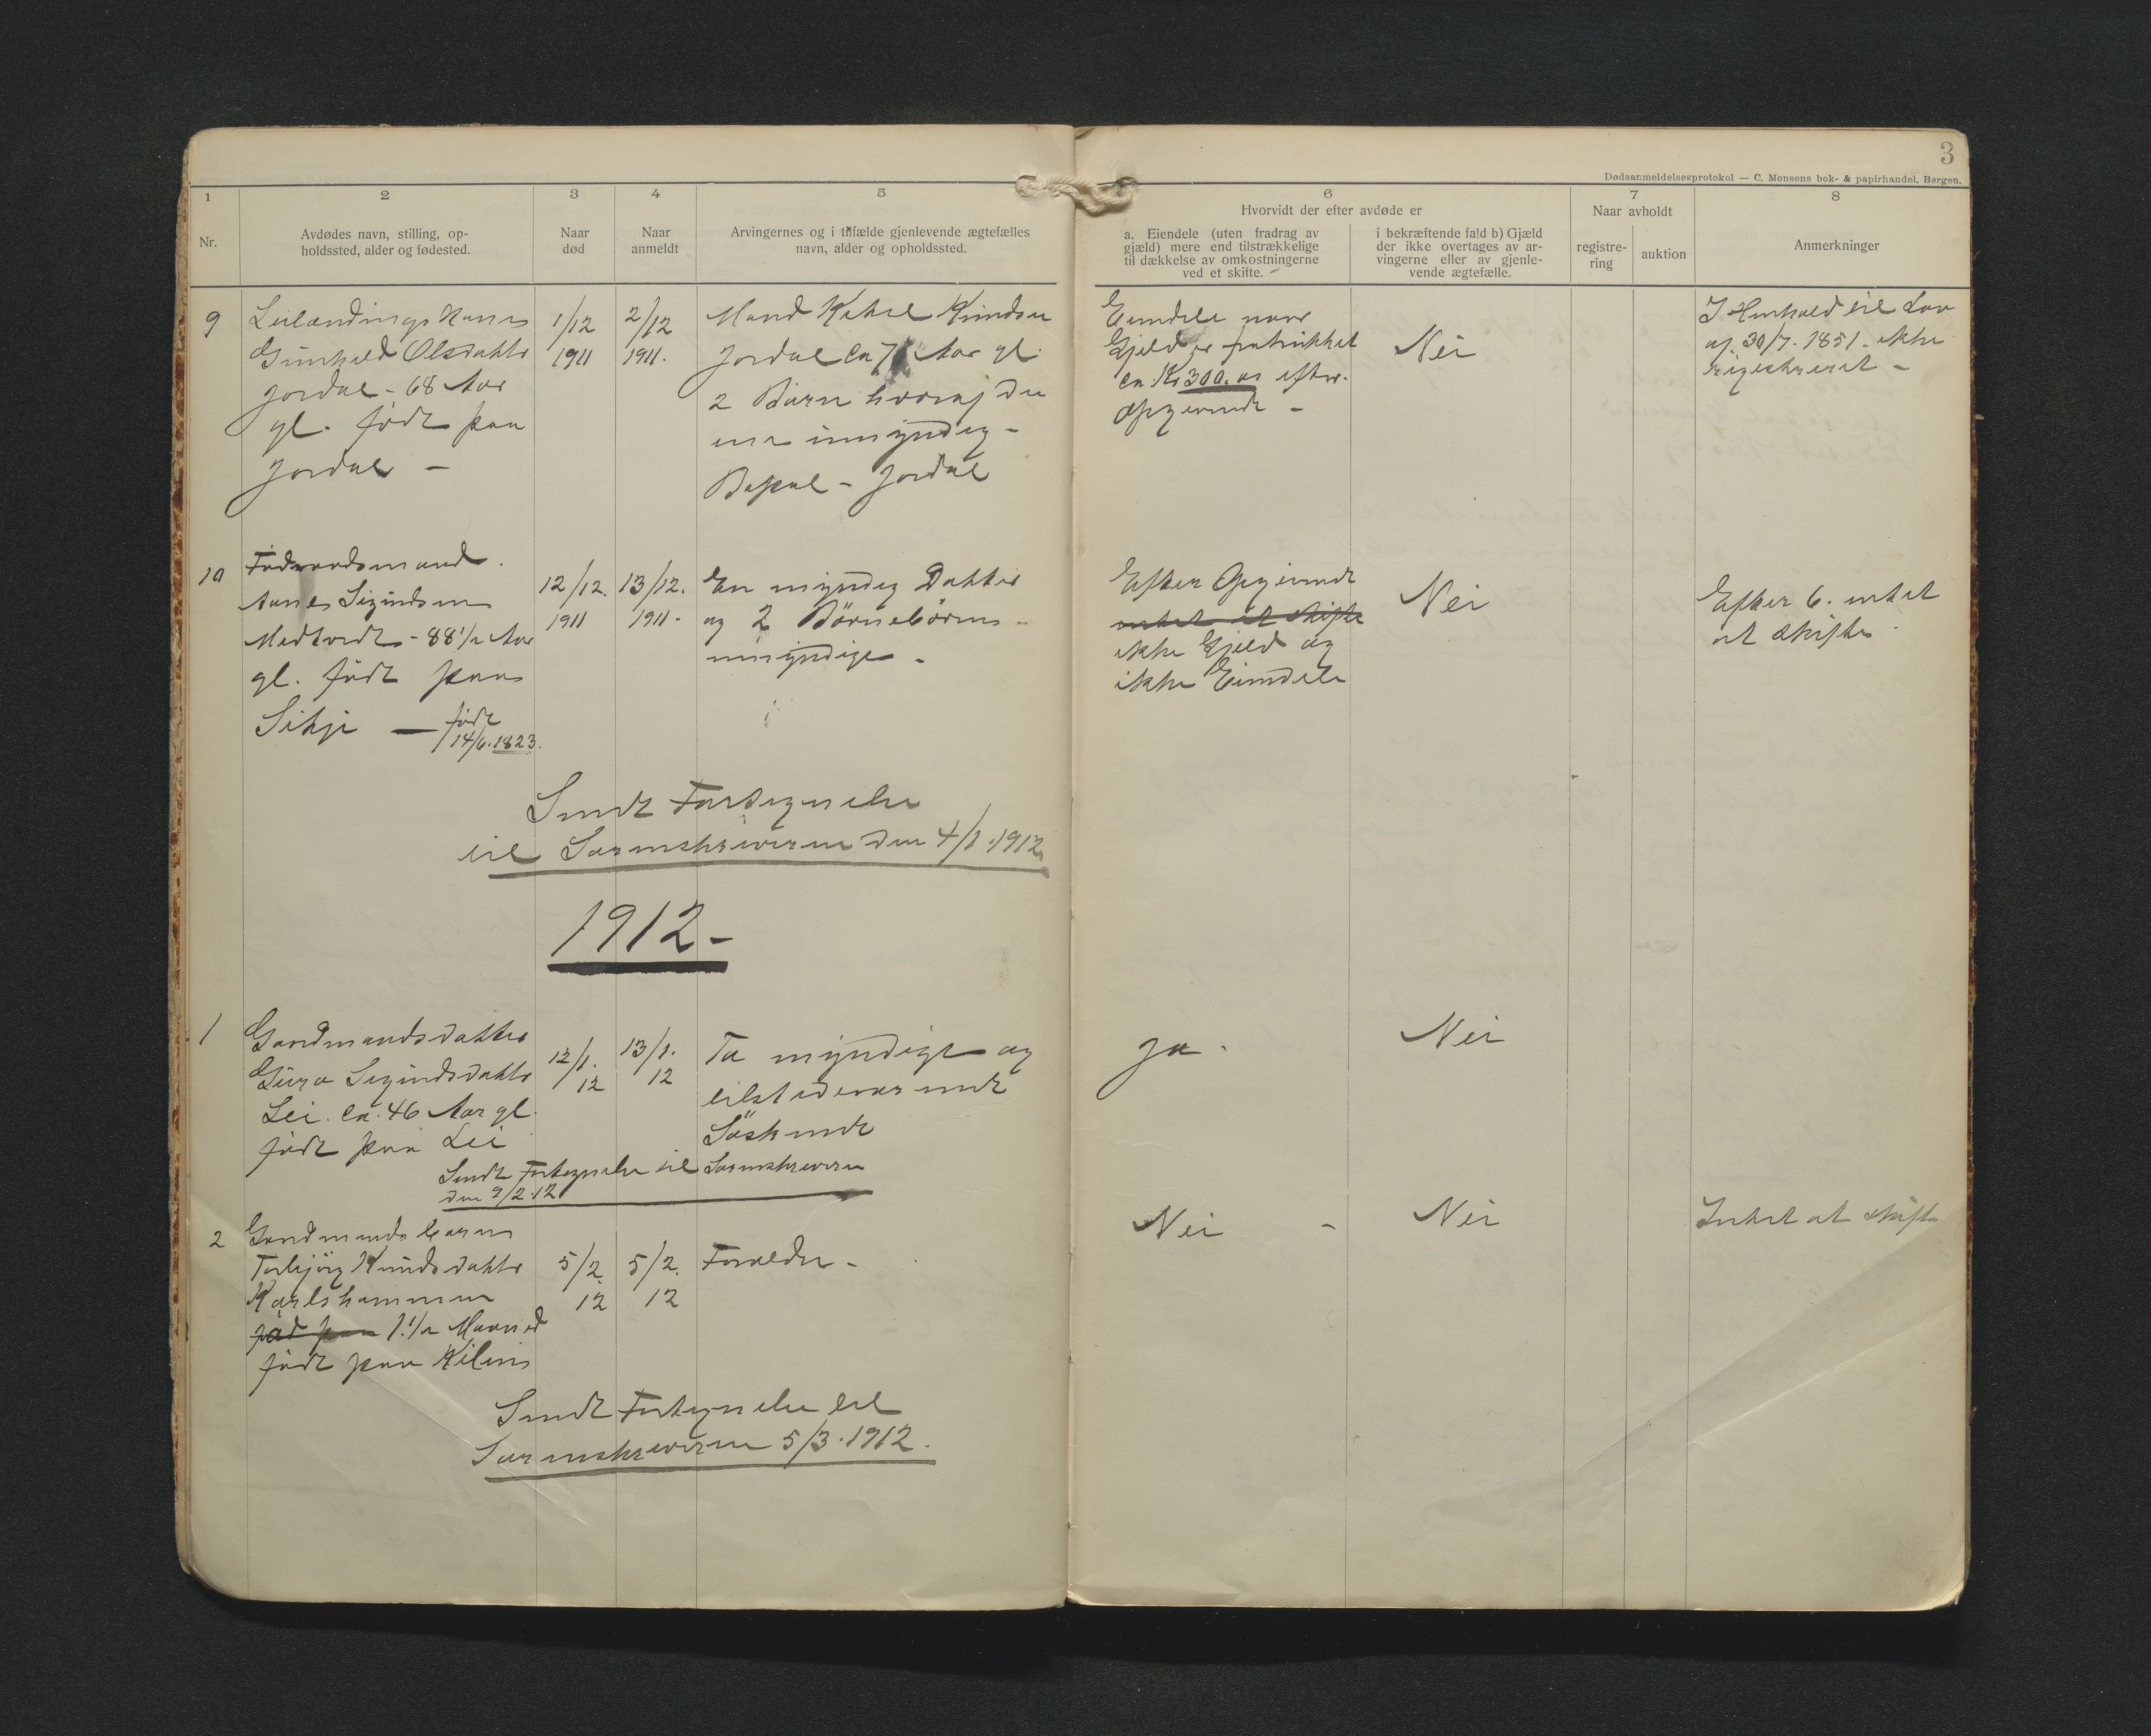 3
Dødsanmeldelsesprotokol — C. Monsens bok- & papirhandel, Bergen.
1
2
3
4
5
6
7
8
Nr.
Avdødes navn, stilling, op-
holdssted, alder og fødested.
Naar
død
Naar
anmeldt
Arvingernes og i tilfælde gjenlevende ægtefælles
navn, alder og opholdssted.
Hvorvidt der efter avdøde er
a. Eiendele (uten fradrag av
gjæld) mere end tilstrækkelige
til dækkelse av omkostningerne
ved et skifte.
i bekræftende fald b) Gjæld
der ikke overtages av ar-
vingerne eller av gjenle-
vende ægtefælle.
Naar avholdt
registre-
ring
auktion
Anmerkninger
9
Leilændings Kone
Gunhild Olsdatter
Jordal - 68 Aar
gl. født paa
Jordal -
1/12
1911
2/12
1911.
Mand Ketel Knudsen
Jordal ca 7 Aar gl.
2 Børn hvoraf den
ene umyndig -
Bopæl - Jordal
Eiendele naar
Gjeld er fratrukket
ca. Kr 300.00 efter
Opgivende -
Nei
I Henhold til Lov
af 30/7. 1851 - ikke
rigestreret -
10
Føderaadsmand
Aanes Sigurdsen
Medtvedt - 88 1/2 Aar
gl. født paa
Sitje — født
14/6. 1823.
12/12.
1911
13/12.
1911 -
En myndig Datter
og 2 Börnebörn -
umyndige -
Efter Opgivende
intet at skifte
ikke Gjeld og
ikke Eiendele
Nei
Efter 6. intet
at skifte
Sendt Fortegnelse
til Sorenskriveren den 4/1. 1912
1912 -
1
Gardmandsdatter
Guro Sigurdsdatter
Lei. ca. 46 Aar gl.
født paa Lei
12/1.
12
13/1.
12
To myndige og
tilstedeværende
Söskende
Ja.
Nei
Sendt Fortegnelse til Sorenskriveren
den 9/2.12
2
Gardmands barn
Torbjörg Knudsdatter
Karlshammeren
fød paa 1. 1/2 Maaned
født paa
5/2.
12
5/2.
12
Forældre -
Nei -
Nei
Intet at skifte
Sendt Fortegnelse til
Sorenskriveren 5/3. 1912.